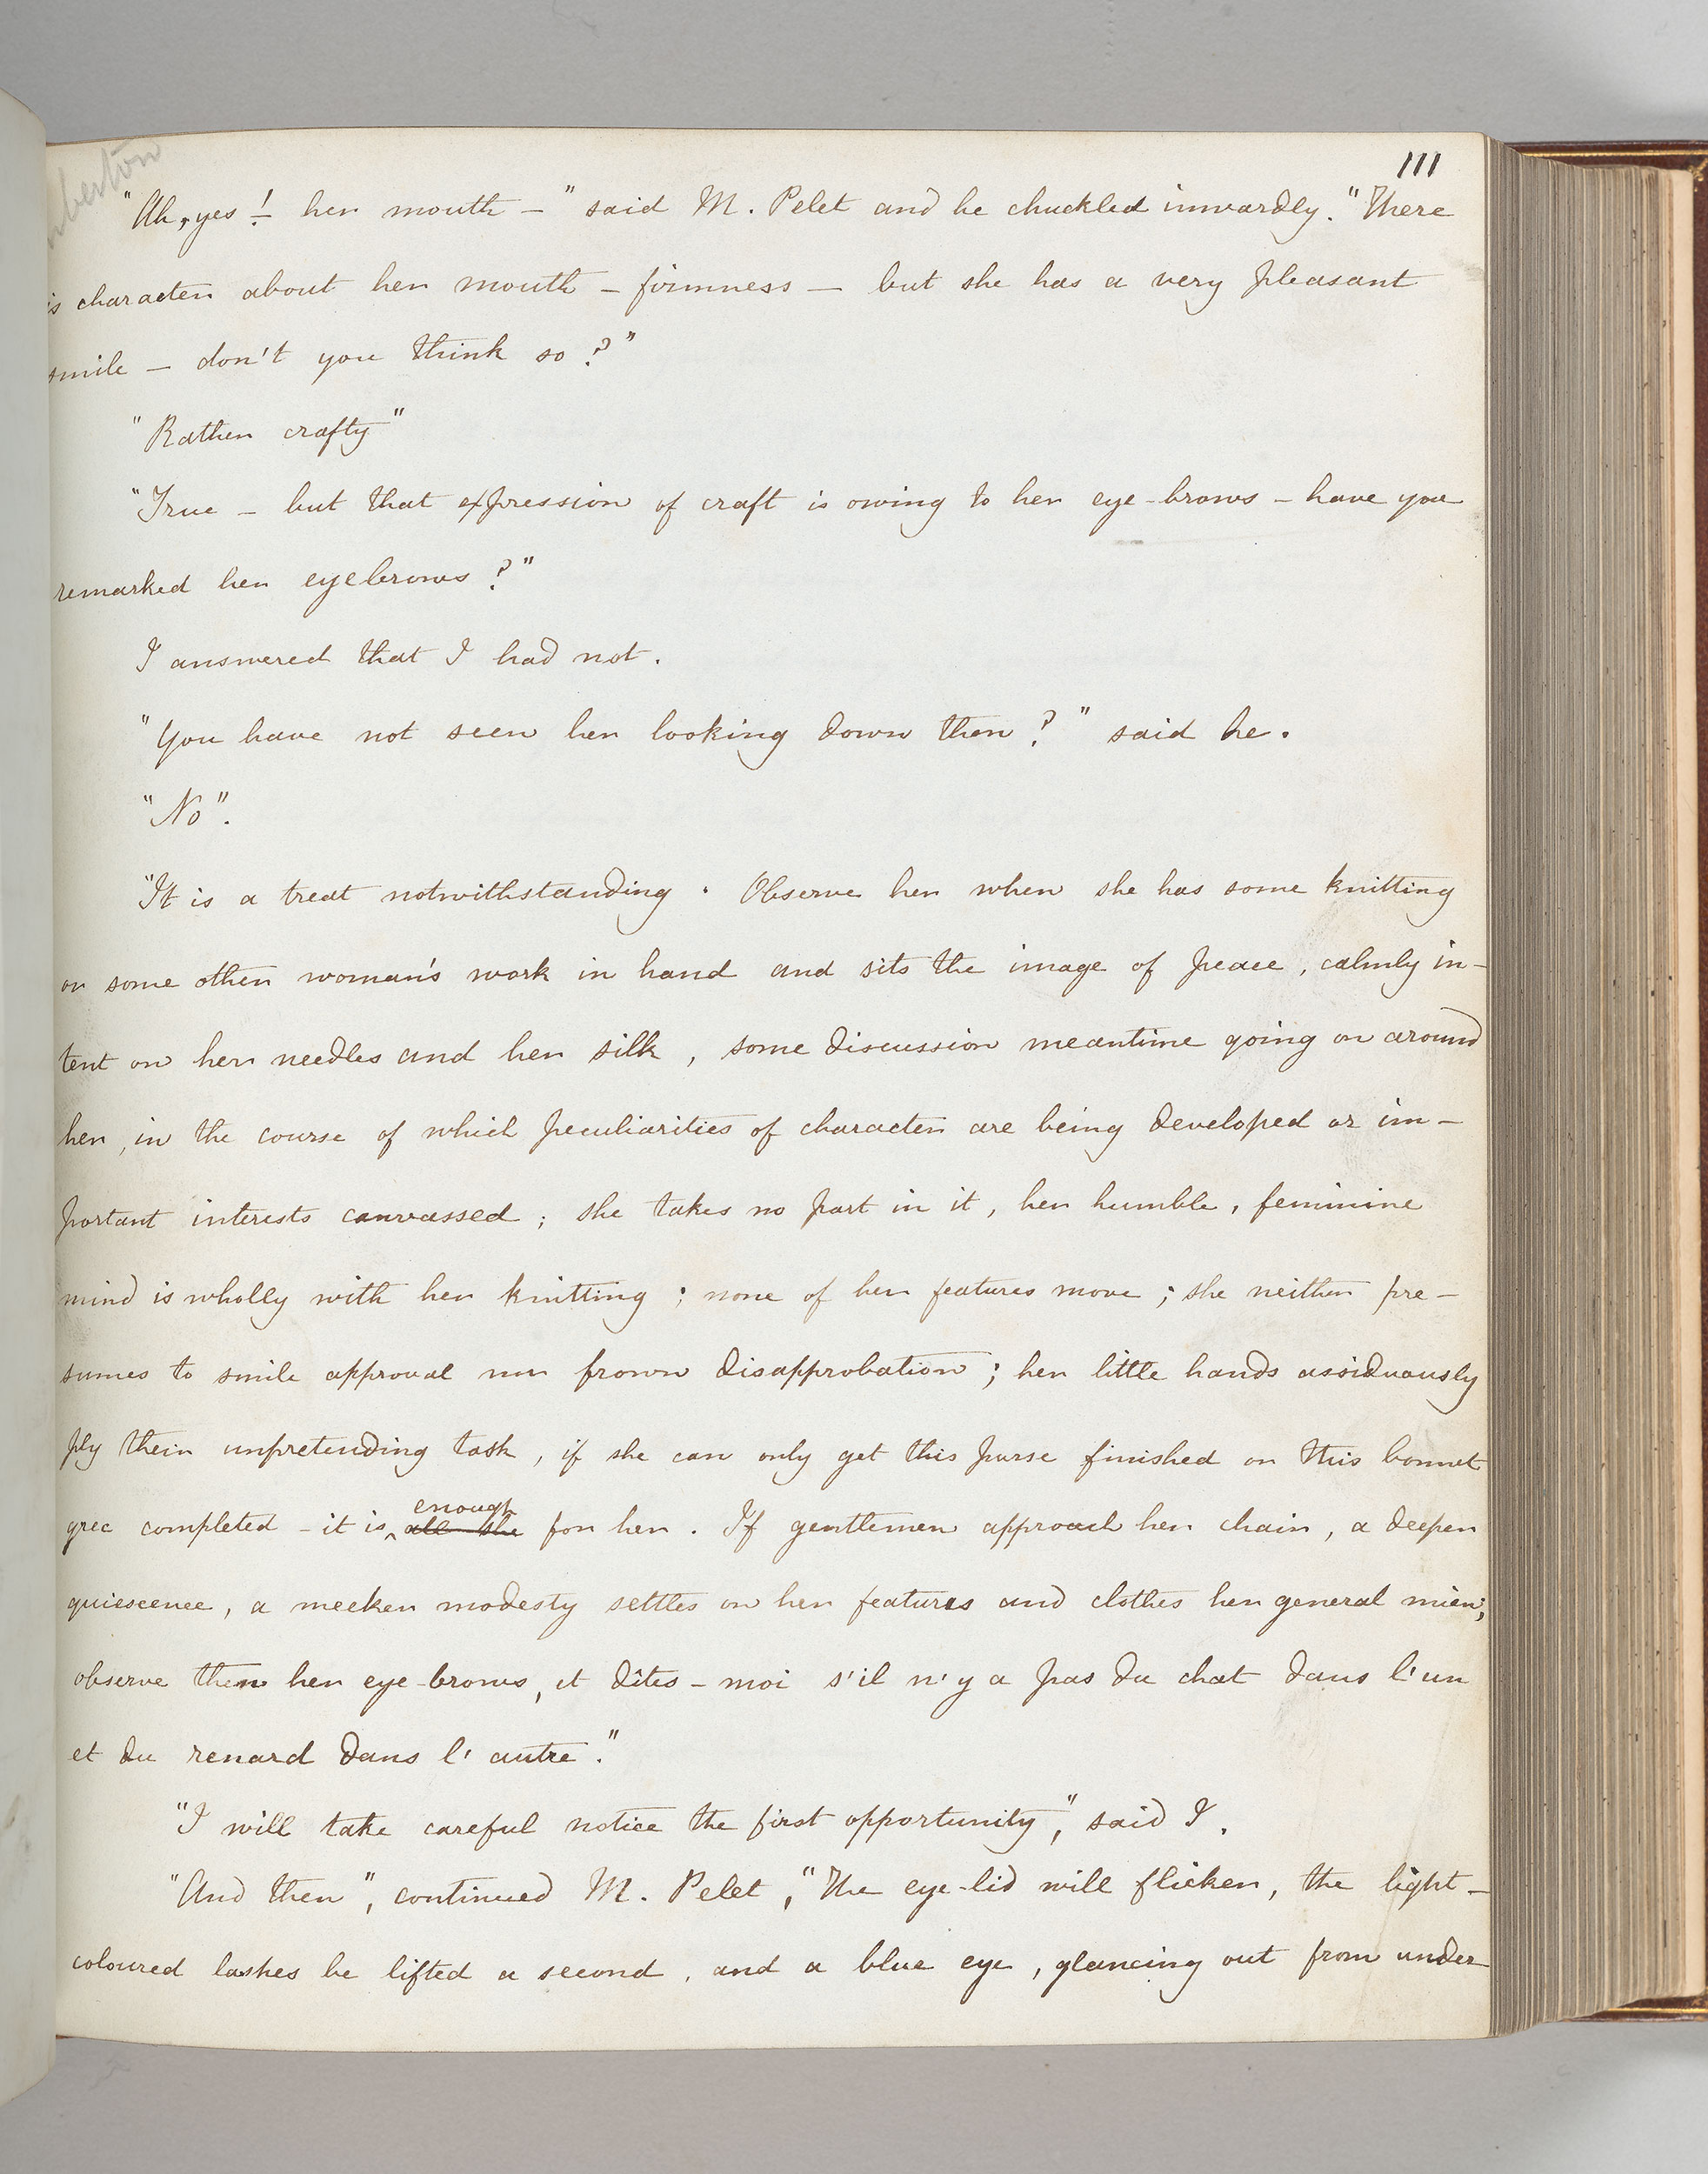 111
"Ah, yes! her mouth — " said M. Pelet and he chuckled inwardly. "There
is character about her mouth — firmness — but she has a very pleasant
smile — don't you think so?"
"Rather crafty"
"True — but that expression of craft is owing to her eye-brows — have you
remarked her eyebrows?"
I answered that I had not.
"You have not seen her looking down then?" said he.
"No".
"It is a treat notwithstanding. Observe her when she has some knitting
or some other woman's work in hand and sits the image of peace, calmly in-
tent on her needles and her silk, some discussion meantime going on around
her, in the course of which peculiarities of character are being developed or im-
portant interests canvassed; she takes no part in it, her humble, feminine
mind is wholly with her knitting; none of her features move; she neither pre-
sumes to smile approval nor frown disapprobation; her little hands assiduously
ply their unpretending task, if she can only get this purse finished or this bonnet
enough
grec completed - it is all she for her. If gentlemen approach her chair, a deeper
quiescence, a meeker modesty settles on her features and clothes her general mien;
observe then her eye-brows, et dîtes-moi s'il n'y a pas du chat dans l'un
et du renard dans l'autre."
"I will take careful notice the first opportunity," said I.
"And then", continued M. Pelet, "The eye-lid will flicker, the light-
coloured lashes be lifted a second, and a blue eye, glancing out from under